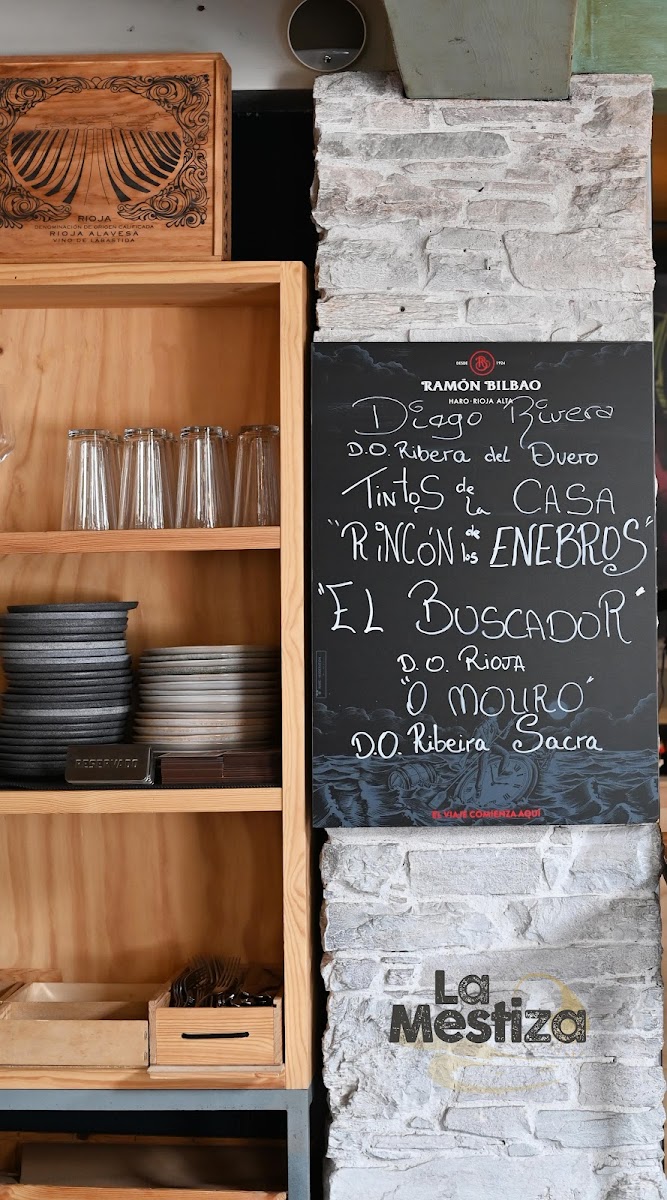 RIOJA
DENOMINACIÓN DE ORIGEN CALIFICADA
RIOJA ALAVESA
VINO DE LABASTIDA
DESDE 1924
RAMÓN BILBAO
HARO · RIOJA ALTA
Diego Rivera
D.O. Ribera del Duero
TINTOS de la CASA
"RINCÓN de los ENEBROS"
"EL BUSCADOR"
D.O. RIOJA
"O MOURO"
D.O. Ribeira Sacra
EL VIAJE COMIENZA AQUÍ
RESERVADO
La
Mestiza